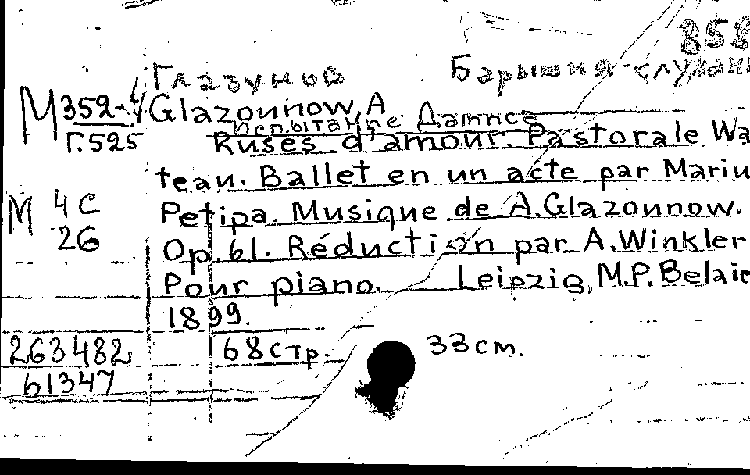 858
Глазунов Барышня-служан
М 352-4 Glazounnow, A
Г.525 Испытание Дамиса
Ruses d'amour. Pastorale Wa
teau. Ballet en un acte par Mariu
М 4С Petipa. Musique de A.Glazounnow.
26 Op.61. Réduction par A.Winkler
Pour piano. Leipzig, M.P.Belaie
1899.
263482 68стр. 33см.
61347